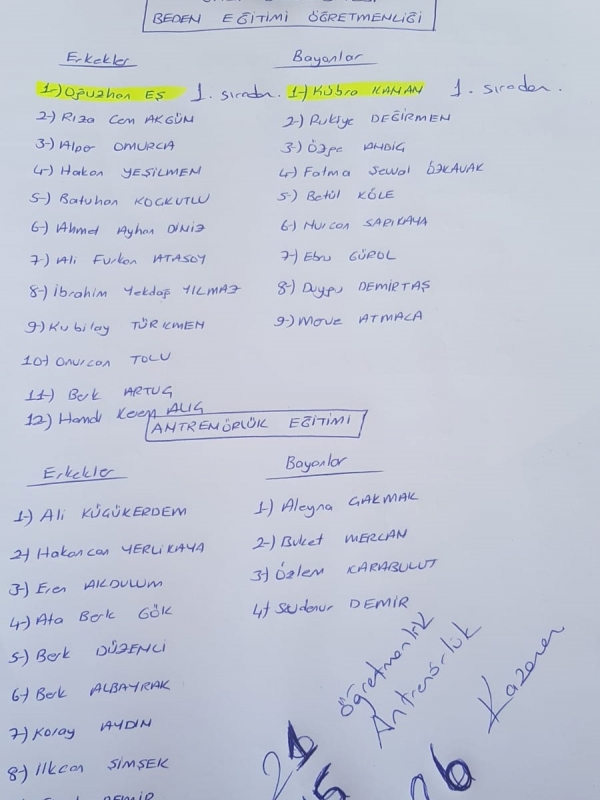 BEDEN EĞİTİMİ ÖĞRETMENLİĞİ
Erkekler
1-) Oğuzhan EŞ 1. sıradan.
2-) Rıza Cem AKGÜN
3-) Alper OMURCA
4-) Hakan YEŞİLMEN
5-) Batuhan KOÇKUTLU
6-) Ahmet Ayhan DİNİZ
7-) Ali Furkan ATASOY
8-) İbrahim Yekdaş YILMAZ
9-) Kubilay TÜRKMEN
10-) Onurcan TOLU
11-) Berk ARTUÇ
12-) Hamdi Kerem ALIÇ
Bayanlar
1-) Kübra KAMAN 1. sıradan.
2-) Rukiye DEĞİRMEN
3-) Özge ANDİÇ
4-) Fatma Sewal ÖZKAVAK
5-) Betül KÖLE
6-) Nurcan SARIKAYA
7-) Ebru GÜROL
8-) Duygu DEMİRTAŞ
9-) Merve ATMACA
ANTRENÖRLÜK EĞİTİMİ
Erkekler
1-) Ali KÜÇÜKERDEM
2-) Hakancan YERLİKAYA
3-) Eren AKDULUM
4-) Ata Berk GÖK
5-) Berk DÜZENCİ
6-) Berk ALBAYRAK
7-) Koray AYDIN
8-) İlkcan ŞİMŞEK
DEMİR
Bayanlar
1-) Aleyna ÇAKMAK
2-) Buket MERCAN
3-) Özlem KARABULUT
4-) Sudenur DEMİR
21 Öğretmenlik
15 Antrenörlük
Kazanan